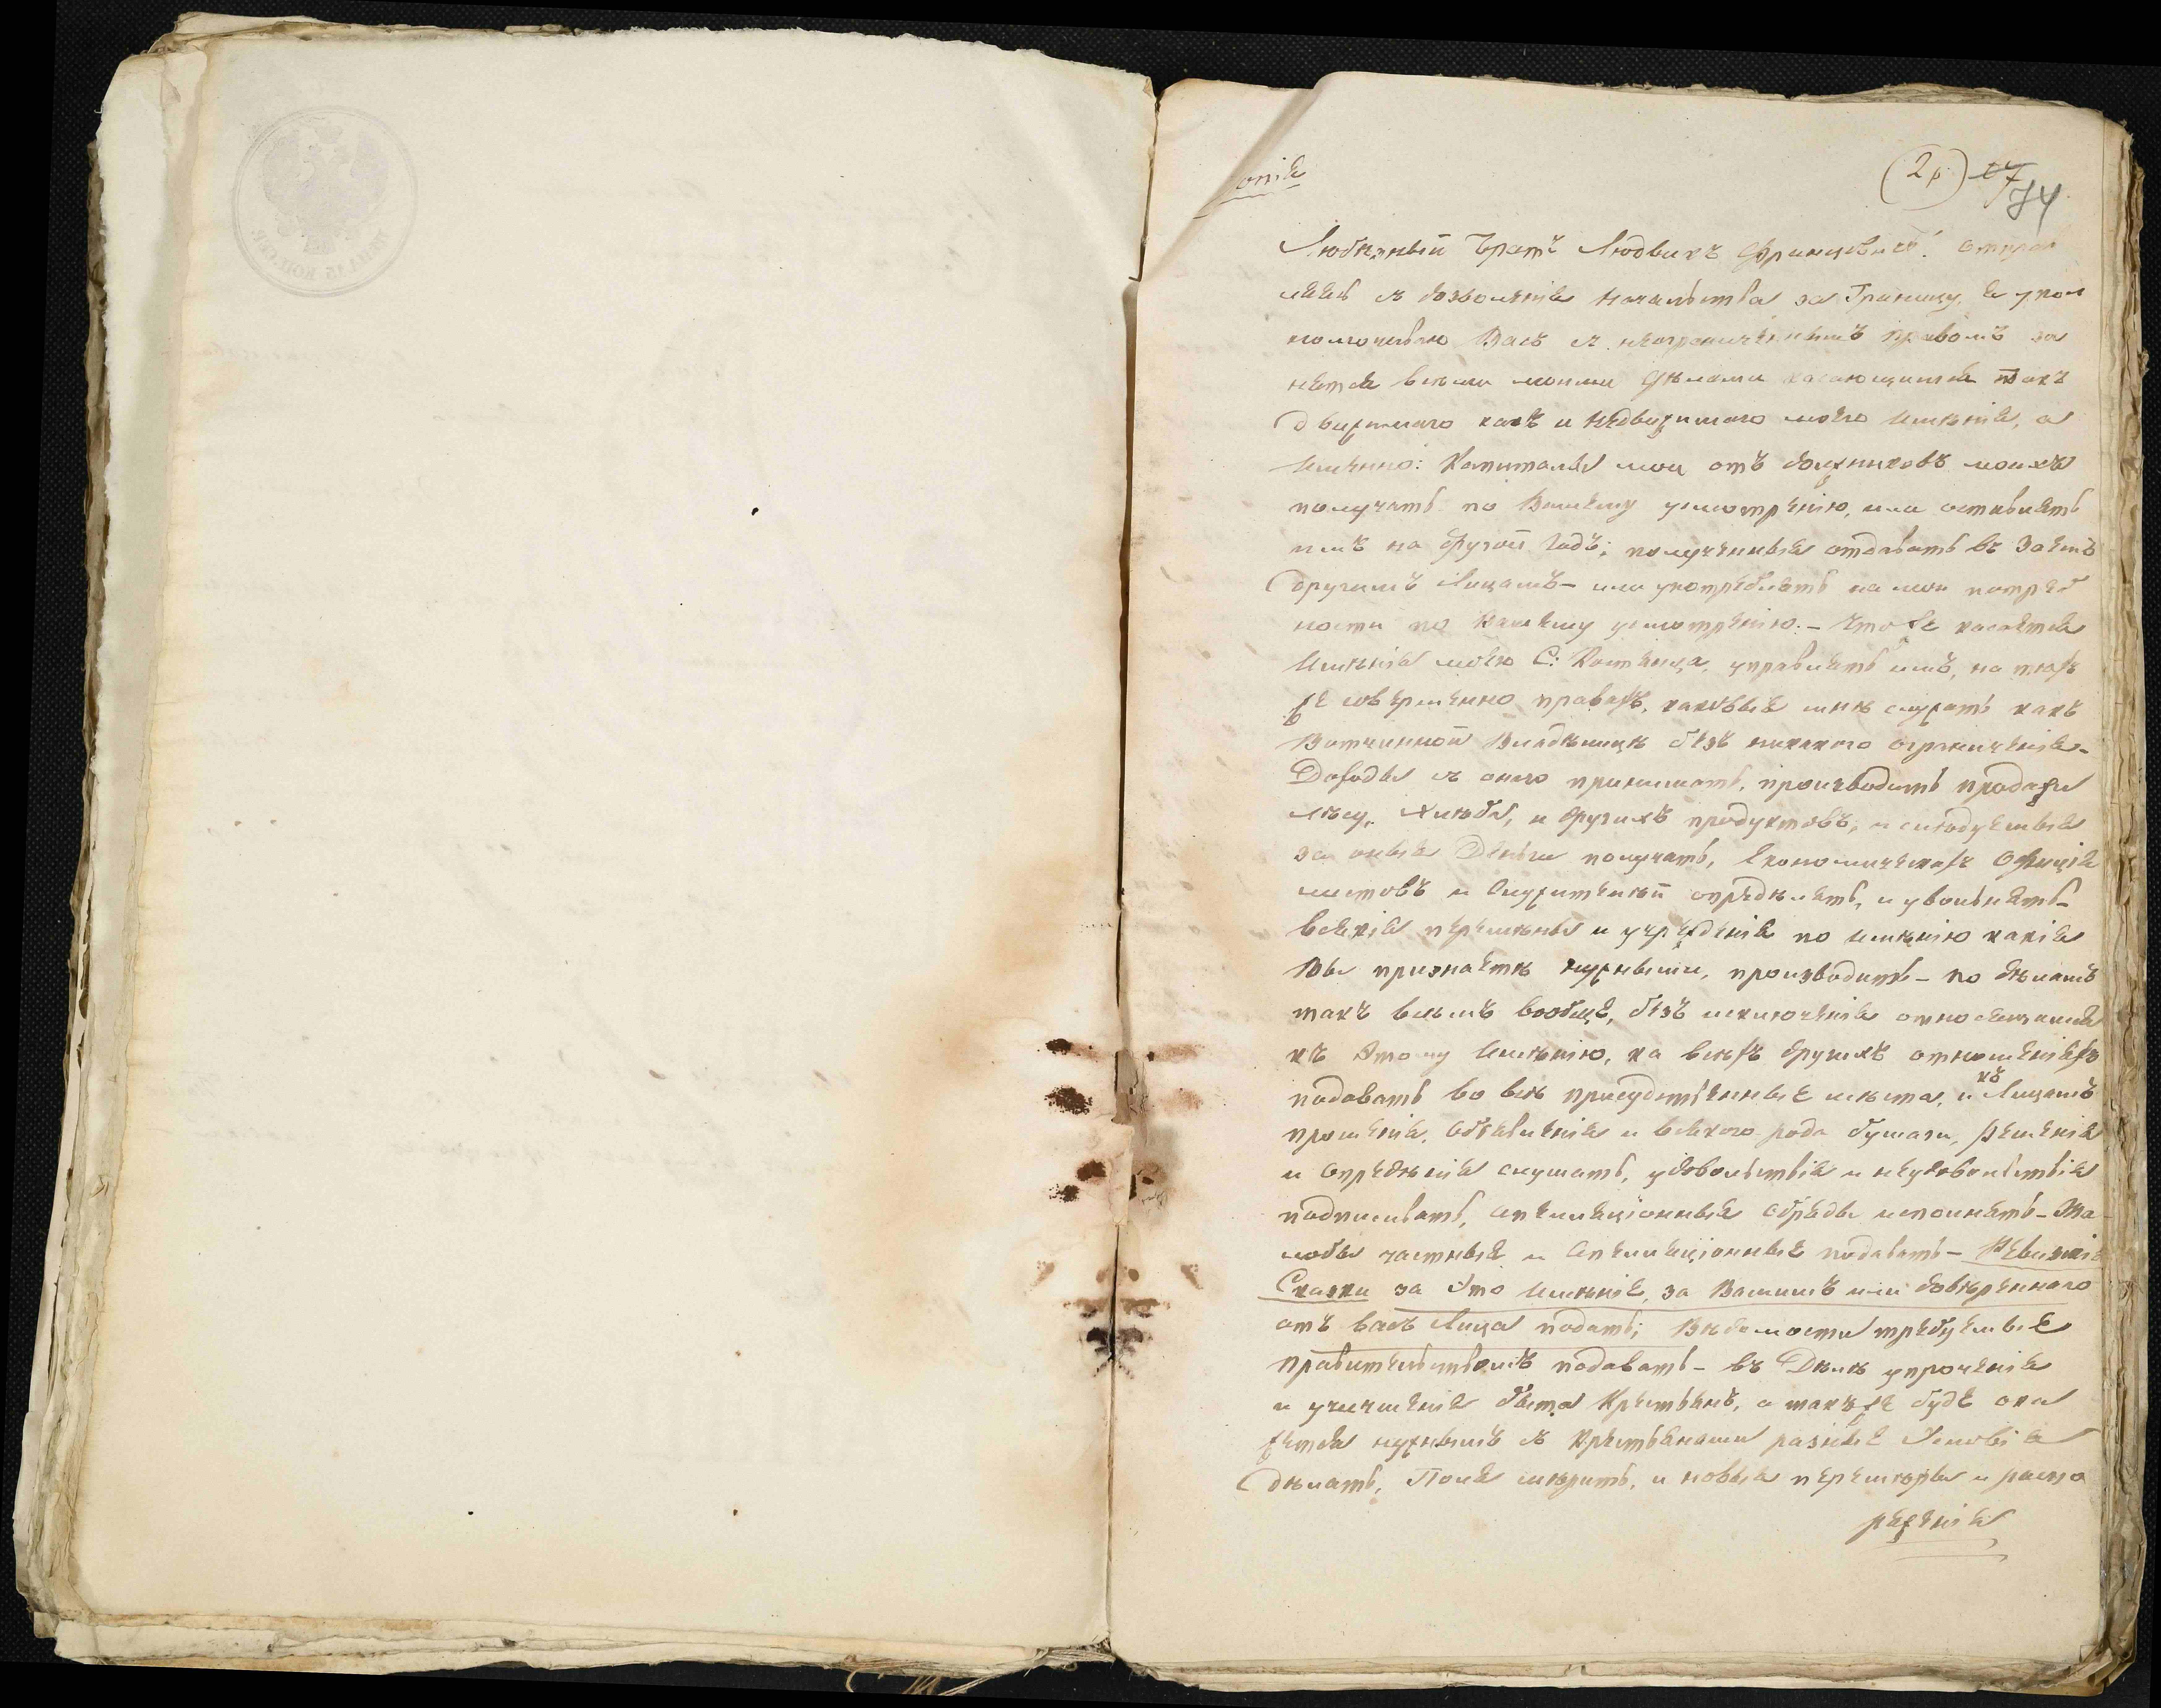 опія
(2) 74
Любезный Братъ Людвикъ Францовичъ! Отправ
ляясь съ дозволенія Начальства за Границу, я упол
номочиваю Васъ съ неограниченнымъ правомъ за
нятся всеми моими Делами касающимися такъ
движимаго какъ и недвижимаго моего Именія, а
Именно: Капиталы мои отъ должниковъ моихъ
получать по Вашему усмотренію, или оставлять
имъ на другой Годъ; полученныя отдавать въ Заемъ
другимъ Лицамъ – или употреблять на мои потреб
ности по Вашему усмотренію. – Чтоже касается
Именія моего С: управлять имъ, на техъ
же совершенно правахъ, каковые мнѣ служатъ какъ
Вотчинной Владѣлицѣ безъ никакого ограниченія –
Доходы съ оного принимать, производить продажи
лѣсу, хлѣба, и другихъ продуктовъ, и слѣдуемыя
за оныя Деньги получать, Економическихъ Офиціа
листовъ и Служителей опредѣлять, и увольнять –
всякія перемѣны и учрежденія по имѣнію какія
Вы признаете нужными, производить – по дѣламъ
такъ всѣмъ вообще, безъ исключенія относящимся
къ Этому Имѣнію, на всѣхъ другихъ отношеніяхъ
подавать во всѣ присудственные мѣста, и къ Лицамъ
прошенія, Объявленія и всякого рода бумаги, рѣшенія
и Опредѣленія слушать, удовольствія и неудовольствія
подписывать, апелляціонныя Обряды исполнять – Жа
лобы частныя и Апелляціонныя подавать – Ревизкія
Сказки за Это Имѣніе, за Вашимъ или довѣренного
отъ васъ Лица подать; Вѣдомости требуемые
Правительствомъ подавать – въ Дѣлѣ упроченія
и улучшенія быта Крестьянъ, а такъже буде ока
жется нужнымъ съ Крестьянами разныя Условія
дѣлать, Поля мѣрить, и новыя и распо
ряженія